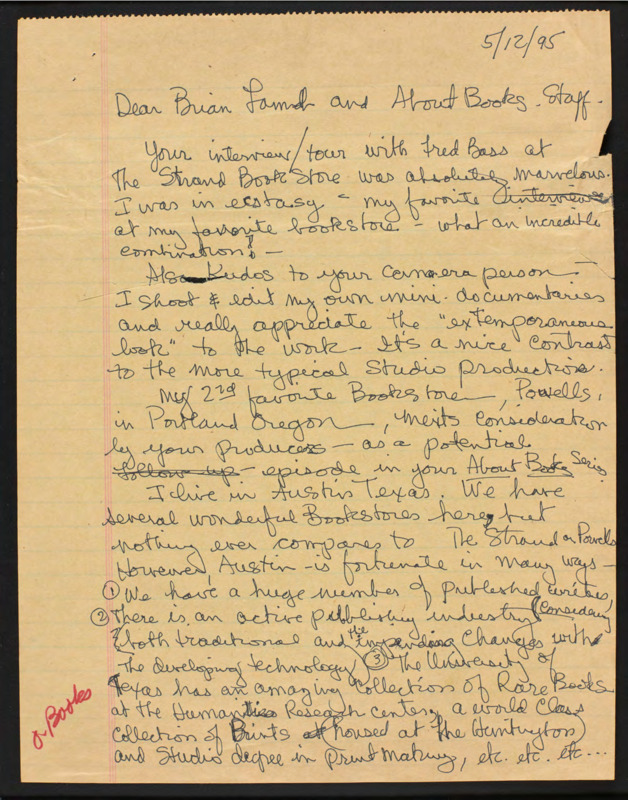 5/12/95
Dear Brian Lamb and About Books. Staff.
Your interview/tour with Fred Bass at
The Strand Book Store was absolutely marvelous.
I was in ecstasy - my favorite interviewer
at my favorite bookstore - what an incredible
combination! -
Also Kudos to your camera person -
I shoot & edit my own mini. documentaries
and really appreciate the "extemporaneous
look" to the work - It's a nice contrast
to the more typical Studio production.
My 2nd favorite Bookstore, Powells,
in Portland Oregon, merits consideration
by your producers - as a potential
follow up - episode in your About Books Series
I live in Austin Texas. We have
several wonderful Bookstores here, but
nothing ever compares to The Strand or Powells
However, Austin - is fortunate in many ways -
① We have a huge number of published writers,
② There is an active publishing industry (considering
both traditional and the impending changes with
The developing technology) ③ The University of
Texas has an amazing collection of Rare Books
at the Humanities Research center, a world class
collection of Prints (housed at the Huntington)
and Studio degree in print making, etc. etc. etc...
a Books